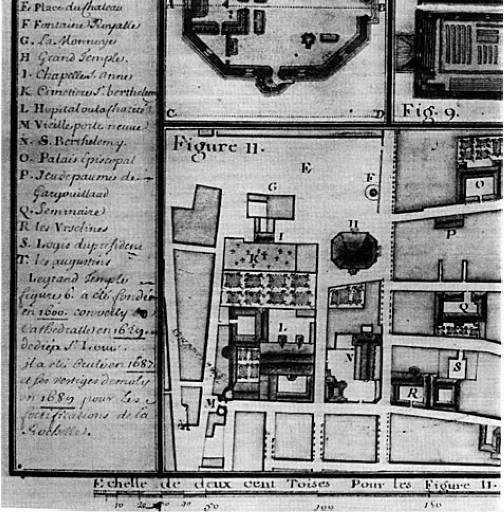 E Place du Chateau
F Fontaine Royalle
G. La Monnoye
H Grand Temples.
I. Chapelle Ste anne
K. Cimetiere St. berthelemy
L Hopital ou la Charité
M Vieille porte neuve
N. S. Berthelemy.
O. Palais Episcopal
P. Jeu de paume de
Gargouillaud
Q. Seminaire
R les Vrselines
S. Louis du president
T. les augustins
Le grand Temple
figure 6. a eté fondé
en 1600. converty en
Cathedralle en 1629.
dedié a St. Louis.
il a eté Brulé en 1687.
et ses vestiges demolis
en 1689 pour les
fortifications de la
Rochelle.
A
B
C
D
Fig. 9.
Figure 11.
E
F
G
H
I
K
L
M
N
O
P
Q
R
S
Echelle de deux cent Toises Pour les Figure 11.
10 20 30 40 50 100 150